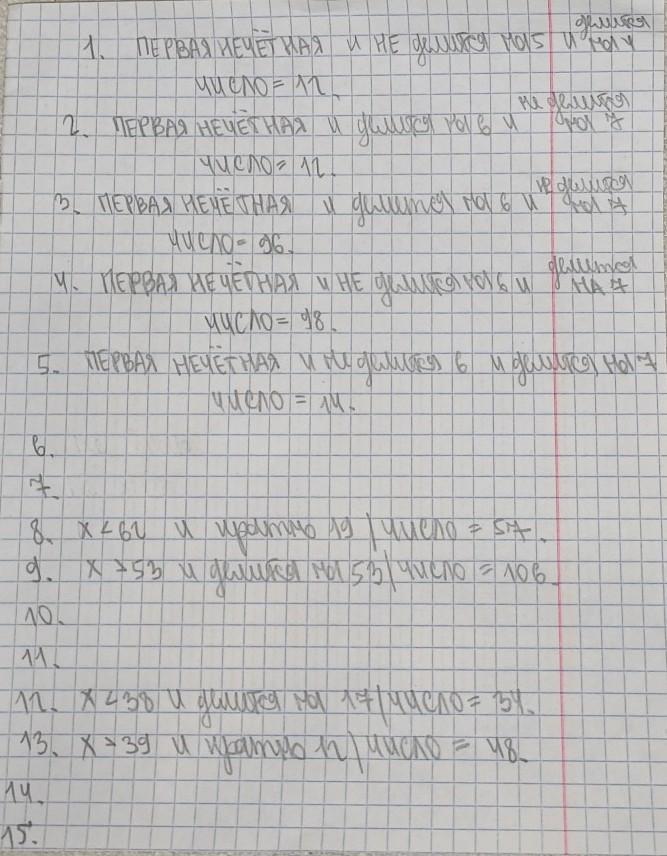 делится
1. ПЕРВАЯ НЕЧЁТНАЯ и НЕ делится на 5 и на 4
число = 12.
не делится
2. ПЕРВАЯ НЕЧЁТНАЯ и делится на 6 и на 7
число = 12.
не делится
3. ПЕРВАЯ НЕЧЁТНАЯ и делится на 6 и на 7
число = 96.
делится
4. ПЕРВАЯ НЕЧЁТНАЯ и НЕ делится на 6 и НА 7
число = 98.
5. ПЕРВАЯ НЕЧЁТНАЯ и не делится 6 и делится на 7
число = 14.
6.
7.
8. x < 62 и кратно 19 / число = 57.
9. x > 53 и делится на 53 / число = 106
10.
11.
12. x < 38 и делится на 17 / число = 34.
13. x > 39 и кратно 12 / число = 48.
14.
15.